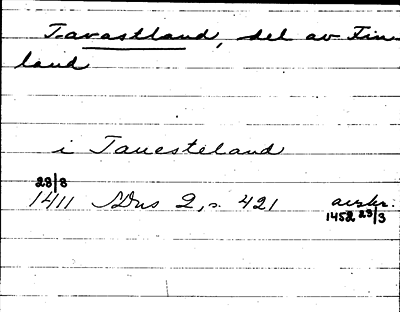 Tavastland, del av Fin-
land
i Tauesteland
23/3
1411 SDns 2, s. 421 avskr.
1452 23/3